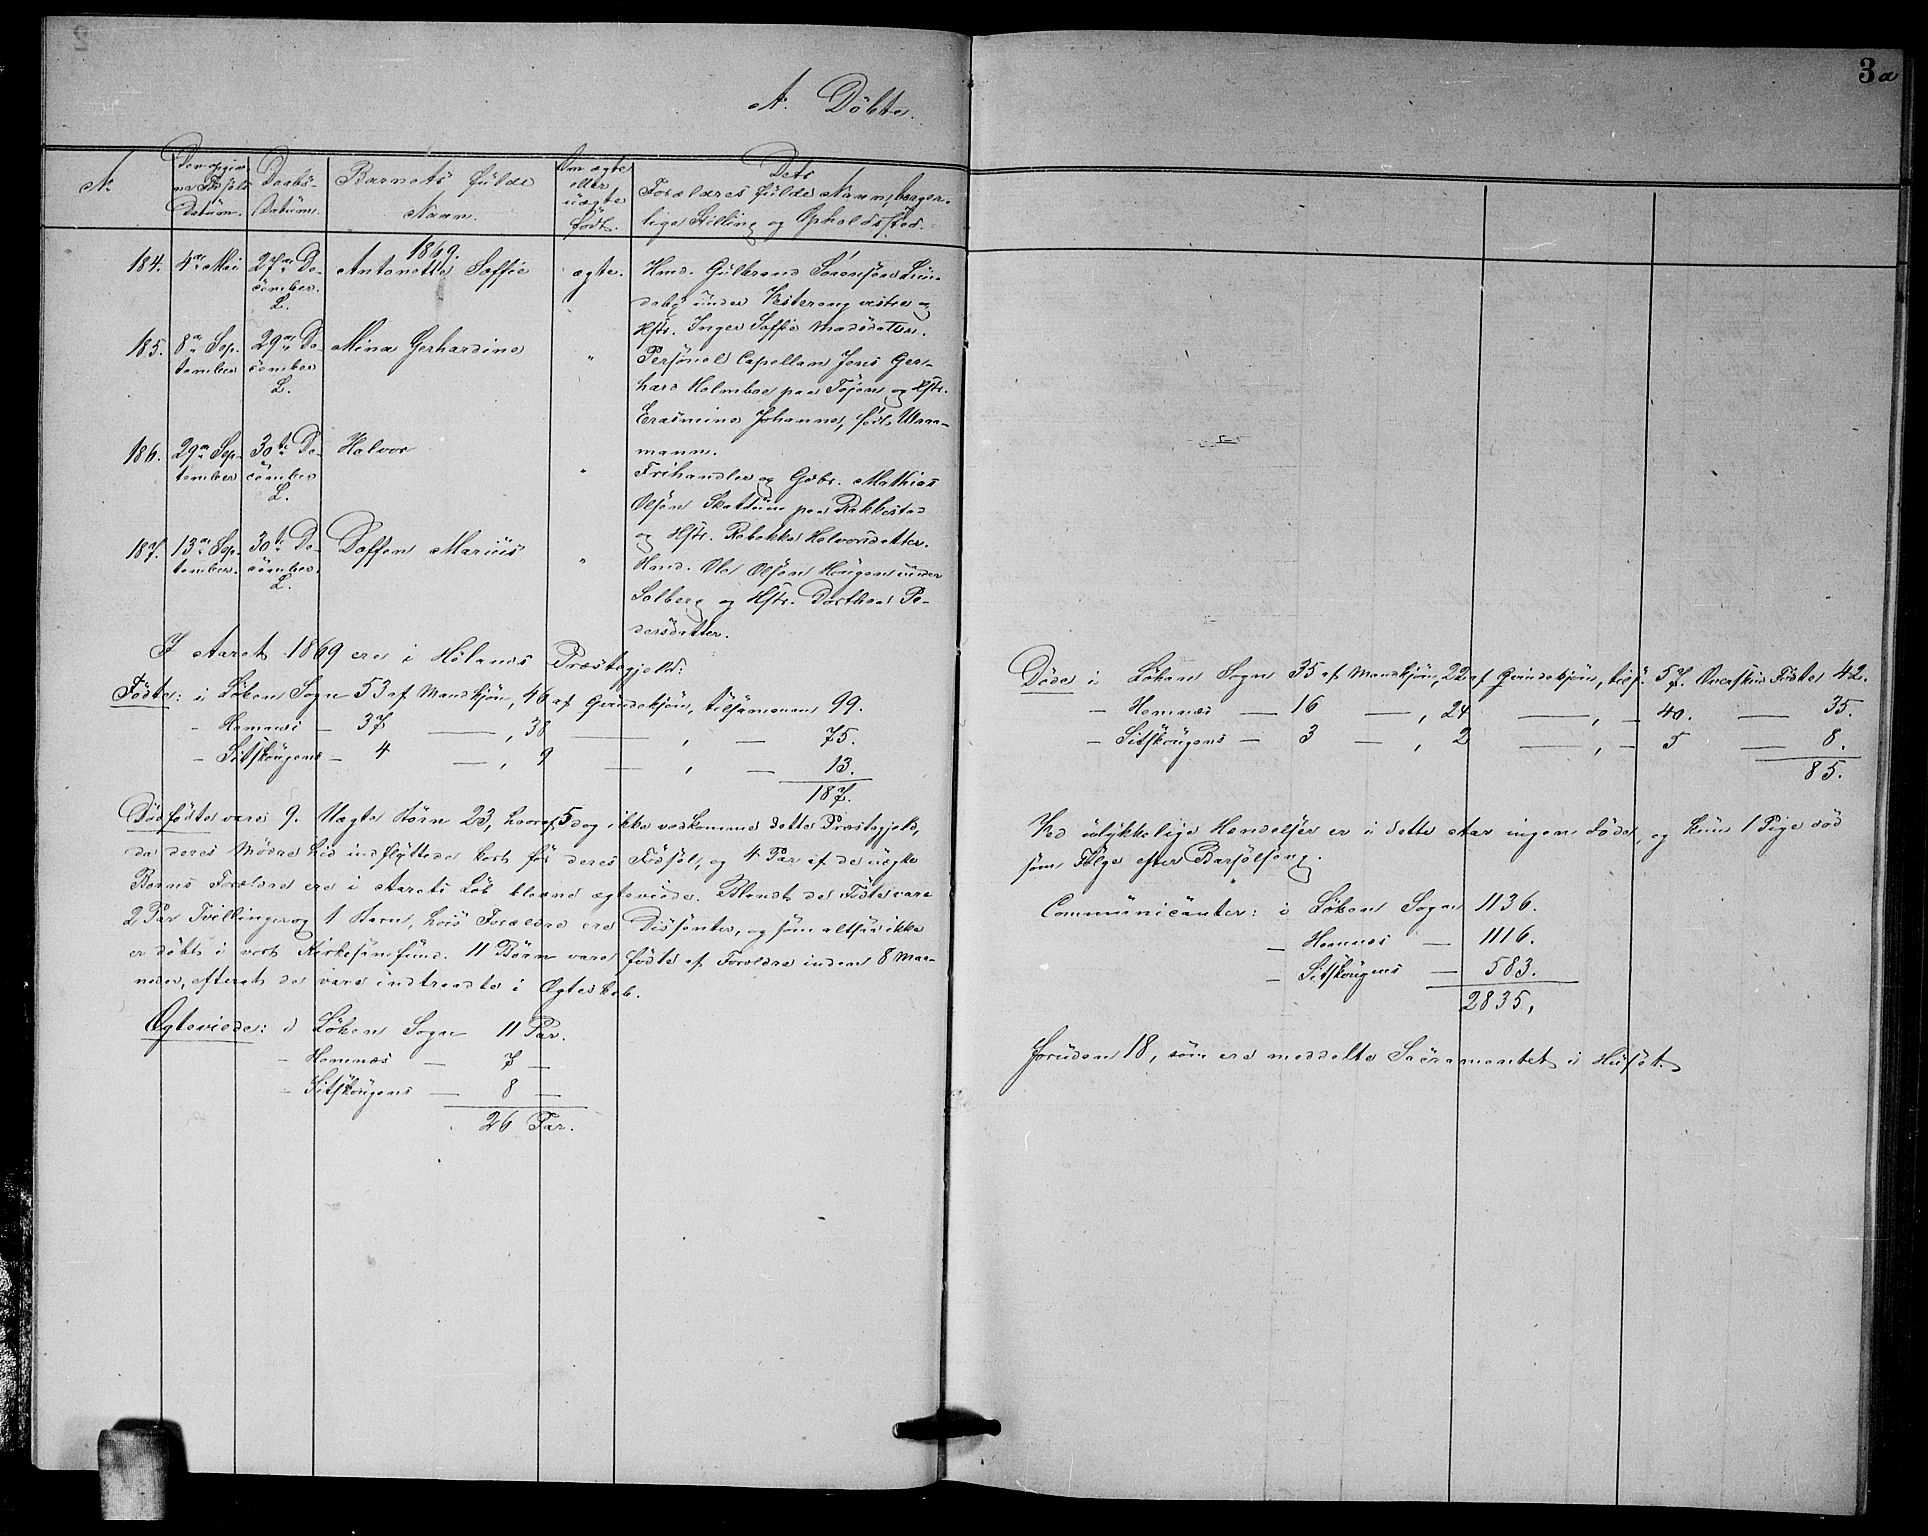 3a
A. Døbte.
N. Den opgivne Fødsels Datum. Daabs-Datum. Barnets fulde Navn. Om ægte eller uægte født. Dets Forældres fulde Navn, borgerlige Stilling og Opholdssted.
1869.
184. 4de Mai 27de December. L. Antonette Soffie ægte. Hmd. Gulbrand Sørensen Lun-
daby under Vestereng vestre og
Hstr. Inger Soffie Madsdatter.
185. 8de September 29de December L. Mina Gerhardine " Personel Capellan Jens Ger-
hard Holmboe paa Tøjen og Hstr.
Erasmine Johanne, født
mann.
186. 29de September 30te December L. Halvor " Frihandler og Gbr. Mathias
Olsen Skattum paa Rakkestad
og Hstr. Rebekka Halvorsdatter.
187. 13de September. 30te December. L. Doffen Marius " Hmd. Ole Olsen Haugen under
Solberg og Hstr. Dorthea Pe-
dersdatter.
I Aaret 1869 ere i Hølands Præstegjeld:
Fødte: i Løken Sogn 53 af Mandkjøn, 46 af Qvindekjøn, tilsammen 99.
- Hemnæs - 37 — , 38 — , — 75.
- Sitskougens - 4 — , 9 — , — 13.
187.
Dødfødte vare 9. Uægte Børn 23, hvoraf 5 dog ikke vedkomme dette Præstegjeld,
da deres Mødre hid indflyttede kort før deres Fødsel, og 4 Par af de uægte
Børns Forældre ere i Aarets Løb blevne ægteviede. Blandt de Fødte vare
2 Par Tvillinger og 1 Barn, hvis Forældre ere Dissenter, og som altsaa ikke
er døbt i vort Kirkesamfund. 11 Børn vare fødte af Forældre inden 8 Maa-
neder, efterat de vare indtraadte i Ægteskab.
Ægteviede: i Løken Sogn 11 Par.
- Hemnæs — 7 —
- Sitskougens — 8 —
26 Par.
Døde i Løken Sogn 35 af Mandkjøn, 22 af Qvindekjøn, tils. 57. Overskud Fødte 42.
- Hemnæs — 16 — , 24 — , - 40. — 35.
- Sitskougens — 3 — , 2 — , - 5 — 8.
85.
Ved ulykkelige Hændelser er i dette Aar ingen døde, og kun 1 Pige død
som Følge efter Barselseng.
Communicanter: i Løken Sogn 1136.
- Hemnæs — 1116.
- Sitskougens — 583.
2835,
foruden 18, som ere meddelte Sacramentet i Huset.